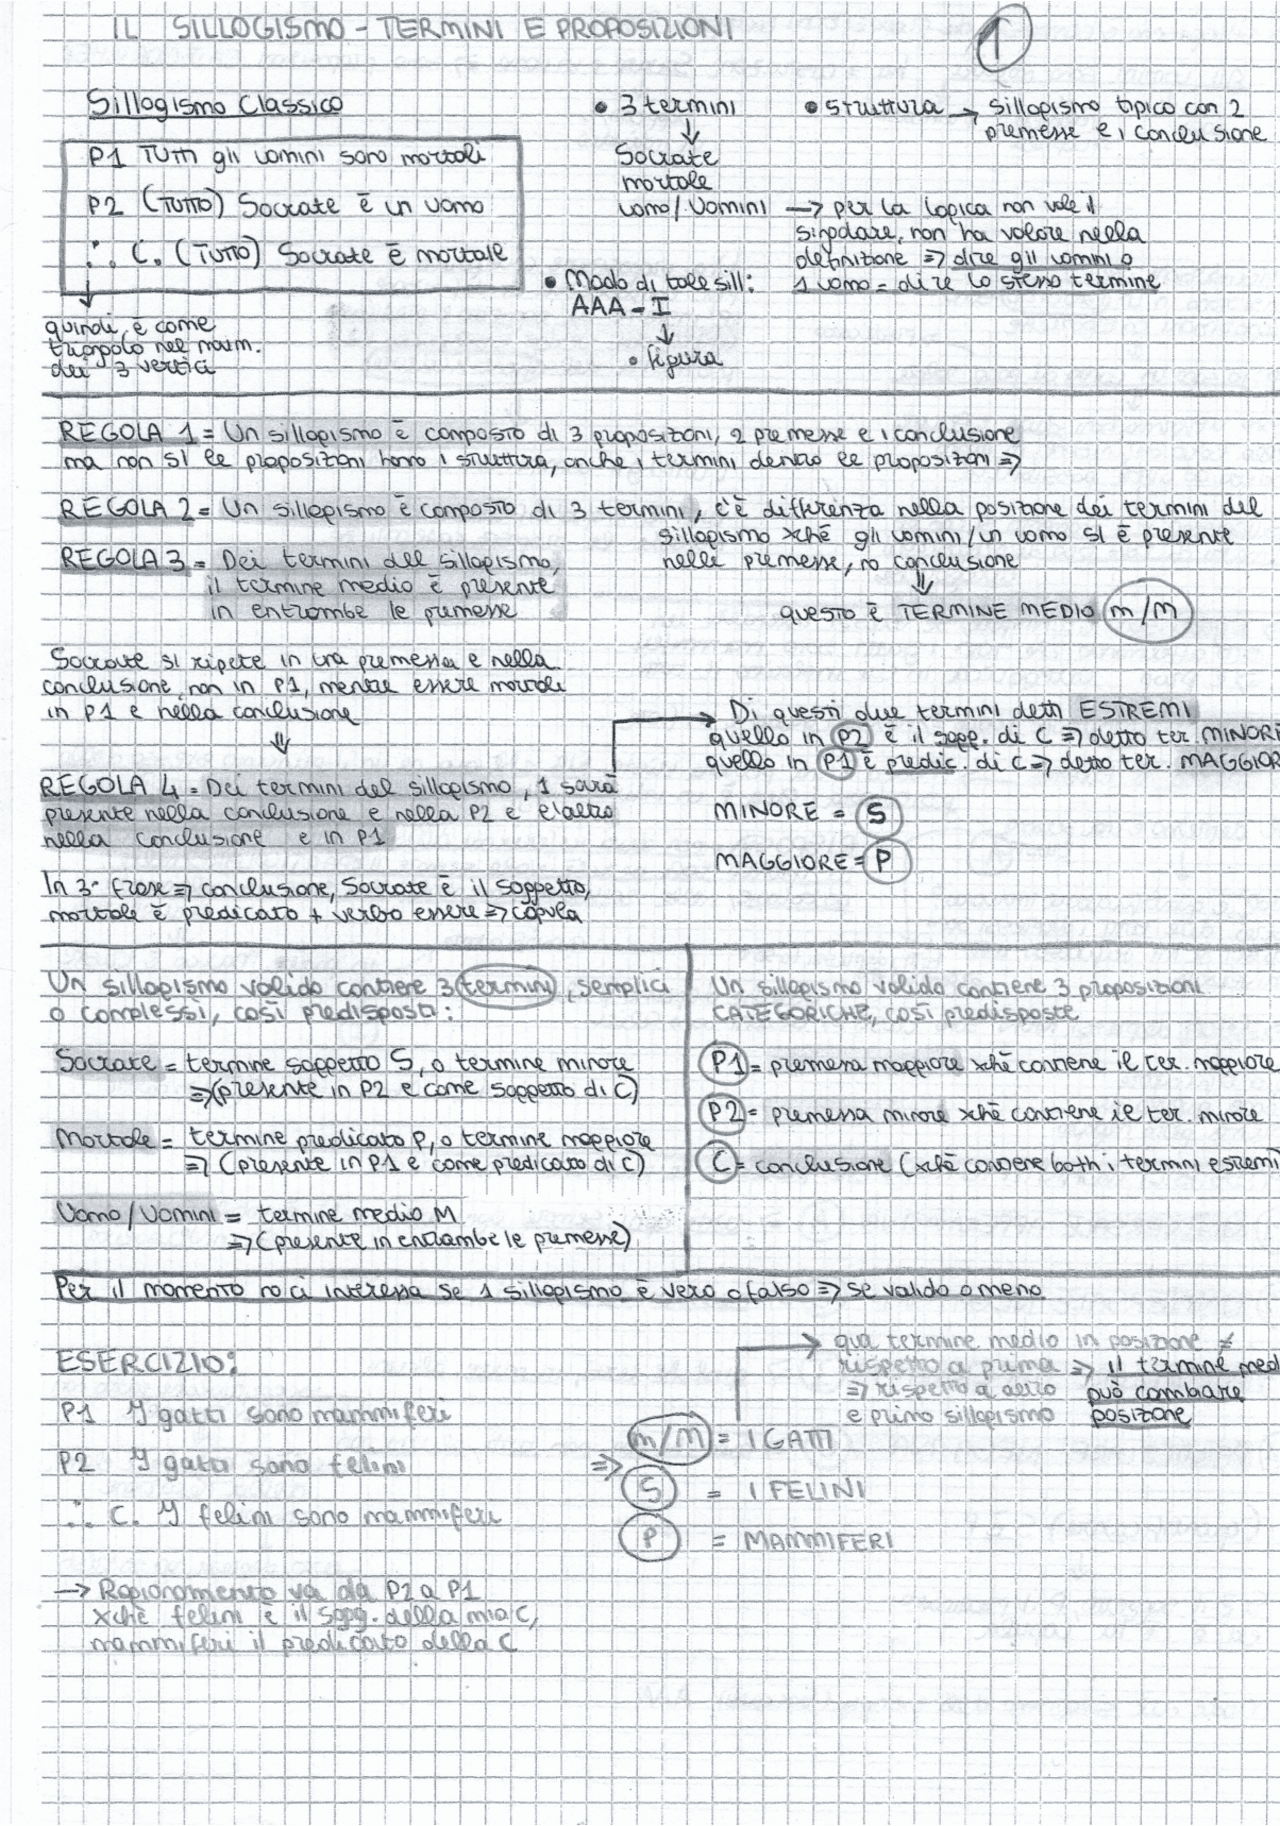 IL SILLOGISMO - TERMINI E PROPOSIZIONI
1
Sillogismo Classico
P1 Tutti gli uomini sono mortali
P2 (TUTTO) Socrate è un uomo
∴ C. (TUTTO) Socrate è mortale
↓
quindi è come
triangolo nel
dei 3 vertici
• 3 termini
↓
Socrate
mortale
uomo/Uomini → per la logica non vale il
singolare, non ha valore nella
definizione => dire gli uomini o
1 uomo = dire lo stesso termine
• struttura → sillogismo tipico con 2
premesse e 1 conclusione
• Modo di tale sill:
AAA - I
↓
• figura
REGOLA 1 = Un sillogismo è composto di 3 proposizioni, 2 premesse e 1 conclusione
ma non sl le proposizioni hanno 1 struttura, anche i termini dentro le proposizioni =>
REGOLA 2 = Un sillogismo è composto di 3 termini, c'è differenza nella posizione dei termini del
sillogismo xché gli uomini/un uomo sl è presente
nelle premesse, no conclusione
↓
questo è TERMINE MEDIO m/M
REGOLA 3 = Dei termini del sillogismo,
il termine medio è presente
in entrambe le premesse
Socrate si ripete in una premessa e nella
conclusione, non in P1, mentre essere mortali
in P1 e nella conclusione
⇓
REGOLA 4 = Dei termini del sillogismo, 1 sarà
presente nella conclusione e nella P2 e l'altro
nella conclusione e in P1
→ Di questi due termini detti ESTREMI
quello in P2 è il sogg. di C => detto ter. MINORE
quello in P1 è predic. di C => detto ter. MAGGIOR
MINORE = S
MAGGIORE = P
In 3ª frase => conclusione, Socrate è il soggetto,
mortale è predicato + verbo essere => copula
Un sillogismo valido contiene 3 termini, semplici
o complessi, così predisposti:
Socrate = termine soggetto S, o termine minore
=> (presente in P2 e come soggetto di C)
Mortale = termine predicato P, o termine maggiore
=> (presente in P1 e come predicato di C)
Uomo/Uomini = termine medio M
=> (presente in entrambe le premesse)
Un sillogismo valido contiene 3 proposizioni
CATEGORICHE, così predisposte
P1 = premessa maggiore xché contiene il ter. maggiore
P2 = premessa minore xché contiene il ter. minore
C = conclusione (xché contiene both i termini estremi
Per il momento no ci interessa se 1 sillogismo è vero o falso => se valido o meno
ESERCIZIO:
P1 I gatti sono mammiferi
P2 I gatti sono felini
∴ C. I felini sono mammiferi
→ qua termine medio in posizione ≠
rispetto a prima => il termine med
=> rispetto a altro può cambiare
e primo sillogismo posizione
m/M = I GATTI
=> S = I FELINI
P = MAMMIFERI
→ Ragionamento va da P2 a P1
xché felini è il sogg. della mia C,
mammiferi il predicato della C